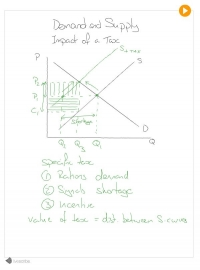 Demand and Supply
Impact of a Tax
P
S+tax
S
P2
P1
C1
Shortage
D
Q2
Q3
Q1
Q
Specific tax
① Rations demand
② Signals shortage
③ Incentive
Value of tax = dist. between S curves